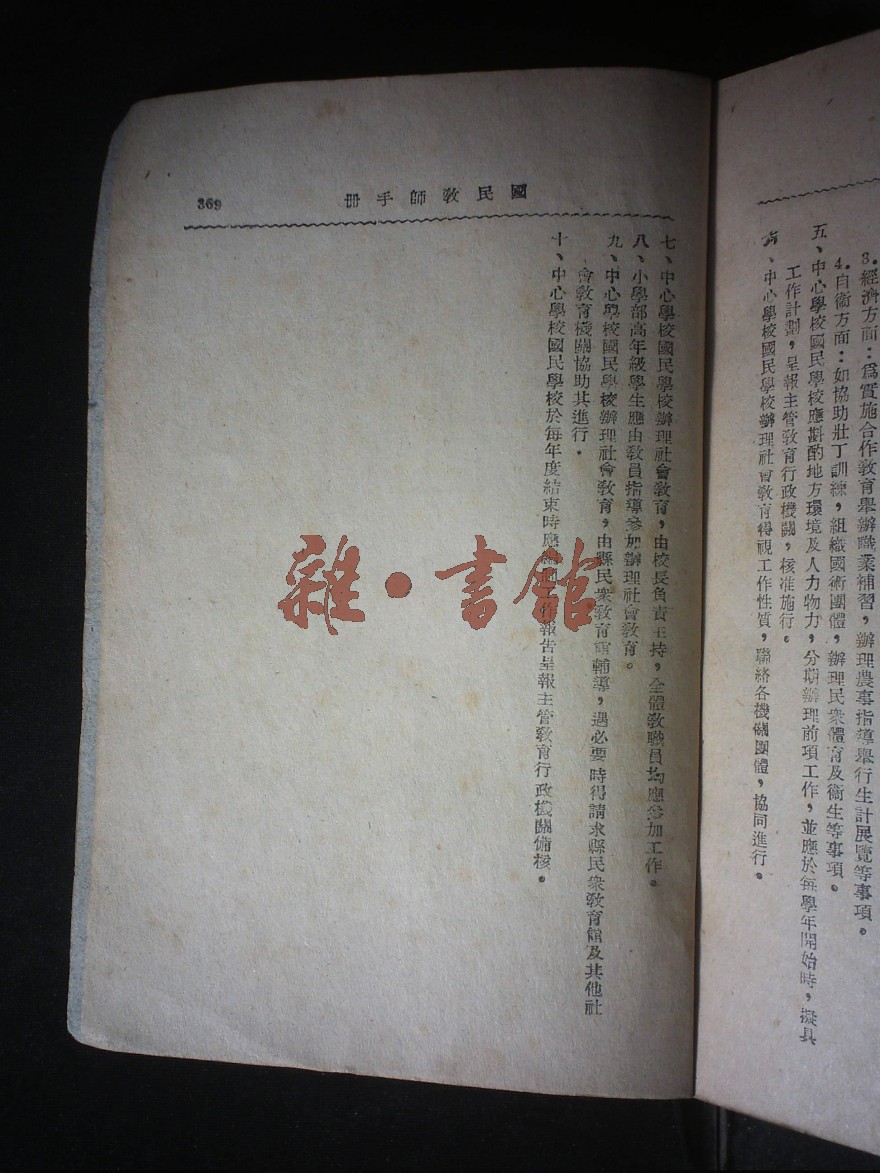 3.經濟方面：爲實施合作教育舉辦職業補習，辦理農事指導舉行生計展覽等事項。
4.自衛方面：如協助壯丁訓練，組織國術團體，辦理民衆體育及衞生等事項。
五、中心學校國民學校應斟酌地方環境及人力物力，分期辦理前項工作，並應於每學年開始時，擬具
工作計劃，呈報主管敎育行政機關，核准施行。
六、中心學校國民學校辦理社會敎育得視工作性質，聯絡各機關團體，協同進行。
國民敎師手冊
369
七、中心學校國民學校辦理社會敎育，由校長負責主持，全體敎職員均應參加工作。
八、小學部高年級學生應由敎員指導參加辦理社會敎育。
九、中心學校國民學校辦理社會敎育，由縣民衆敎育館輔導，遇必要時得請求縣民衆敎育館及其他社
會敎育機關協助其進行．
十、中心學校國民學校於每年度結束時應報告呈報主管敎育行政機關備核。
雜·書館